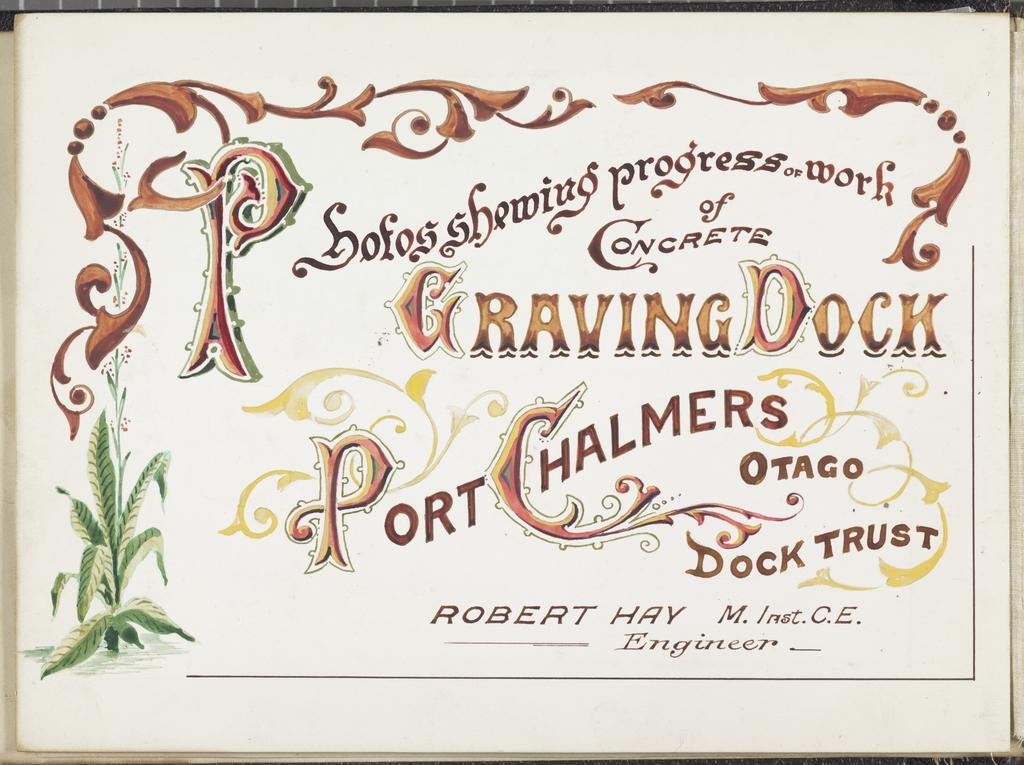 Photos shewing progress OF work
of
CONCRETE
GRAVING DOCK
PORT CHALMERS
OTAGO
DOCK TRUST
ROBERT HAY M. Inst. C.E.
Engineer